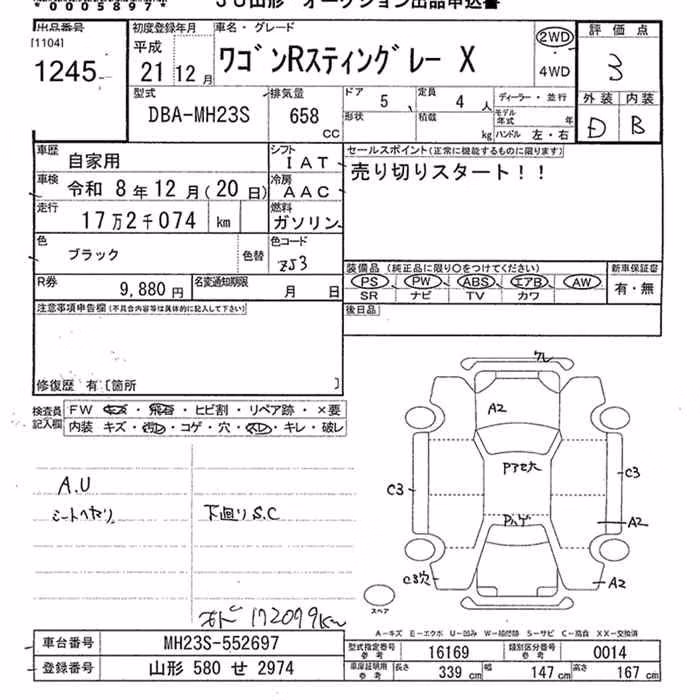 *0003897*
JU山形 オークション出品申込書
出品番号
[1104]
1245
初度登録年月
平成
21年 12月
車名・グレード
ワゴンRスティングレー X
2WD
4WD
評価点
3
外装 内装
D B
型式
DBA-MH23S
排気量
658
CC
ドア
5
定員
4人
形状
積載
kg
ディーラー・並行
モデル年式 年
ハンドル 左・右
車歴
自家用
シフト
IAT
車検
令和 8年12月(20日)
冷房
AAC
走行
17万2千074 km
燃料
ガソリン
色
ブラック
色替
色コード
ZJ3
セールスポイント(正常に機能するものに限ります)
売り切りスタート!!
R券
9,880円
名変通知期限
月 日
装備品 (純正品に限り○をつけてください)
PS PW ABS エアB AW
SR ナビ TV カワ
新車保証書
有・無
注意事項申告欄(不具合内容等は具体的に記入して下さい)
後日品
修復歴 有〔箇所 〕
検査員記入欄
FW キズ・飛石・ヒビ割・リペア跡・×要
内装 キズ・汚レ・コゲ・穴・スレ・キレ・破レ
A.U
シートヘタリ
下廻りS.C
ワレ
A2
Pアセ大
Pハゲ
C3
C3
A2
A2
C3穴
スペア
メーター 172099km
A-キズ E-エクボ U-凹み W-補修跡 S-サビ C-腐食 XX-交換済
車台番号
MH23S-552697
登録番号
山形 580 せ 2974
型式指定番号
参考
16169
類別区分番号
参考
0014
車庫証明用
参考
長さ 339cm 幅 147cm 高さ 167cm